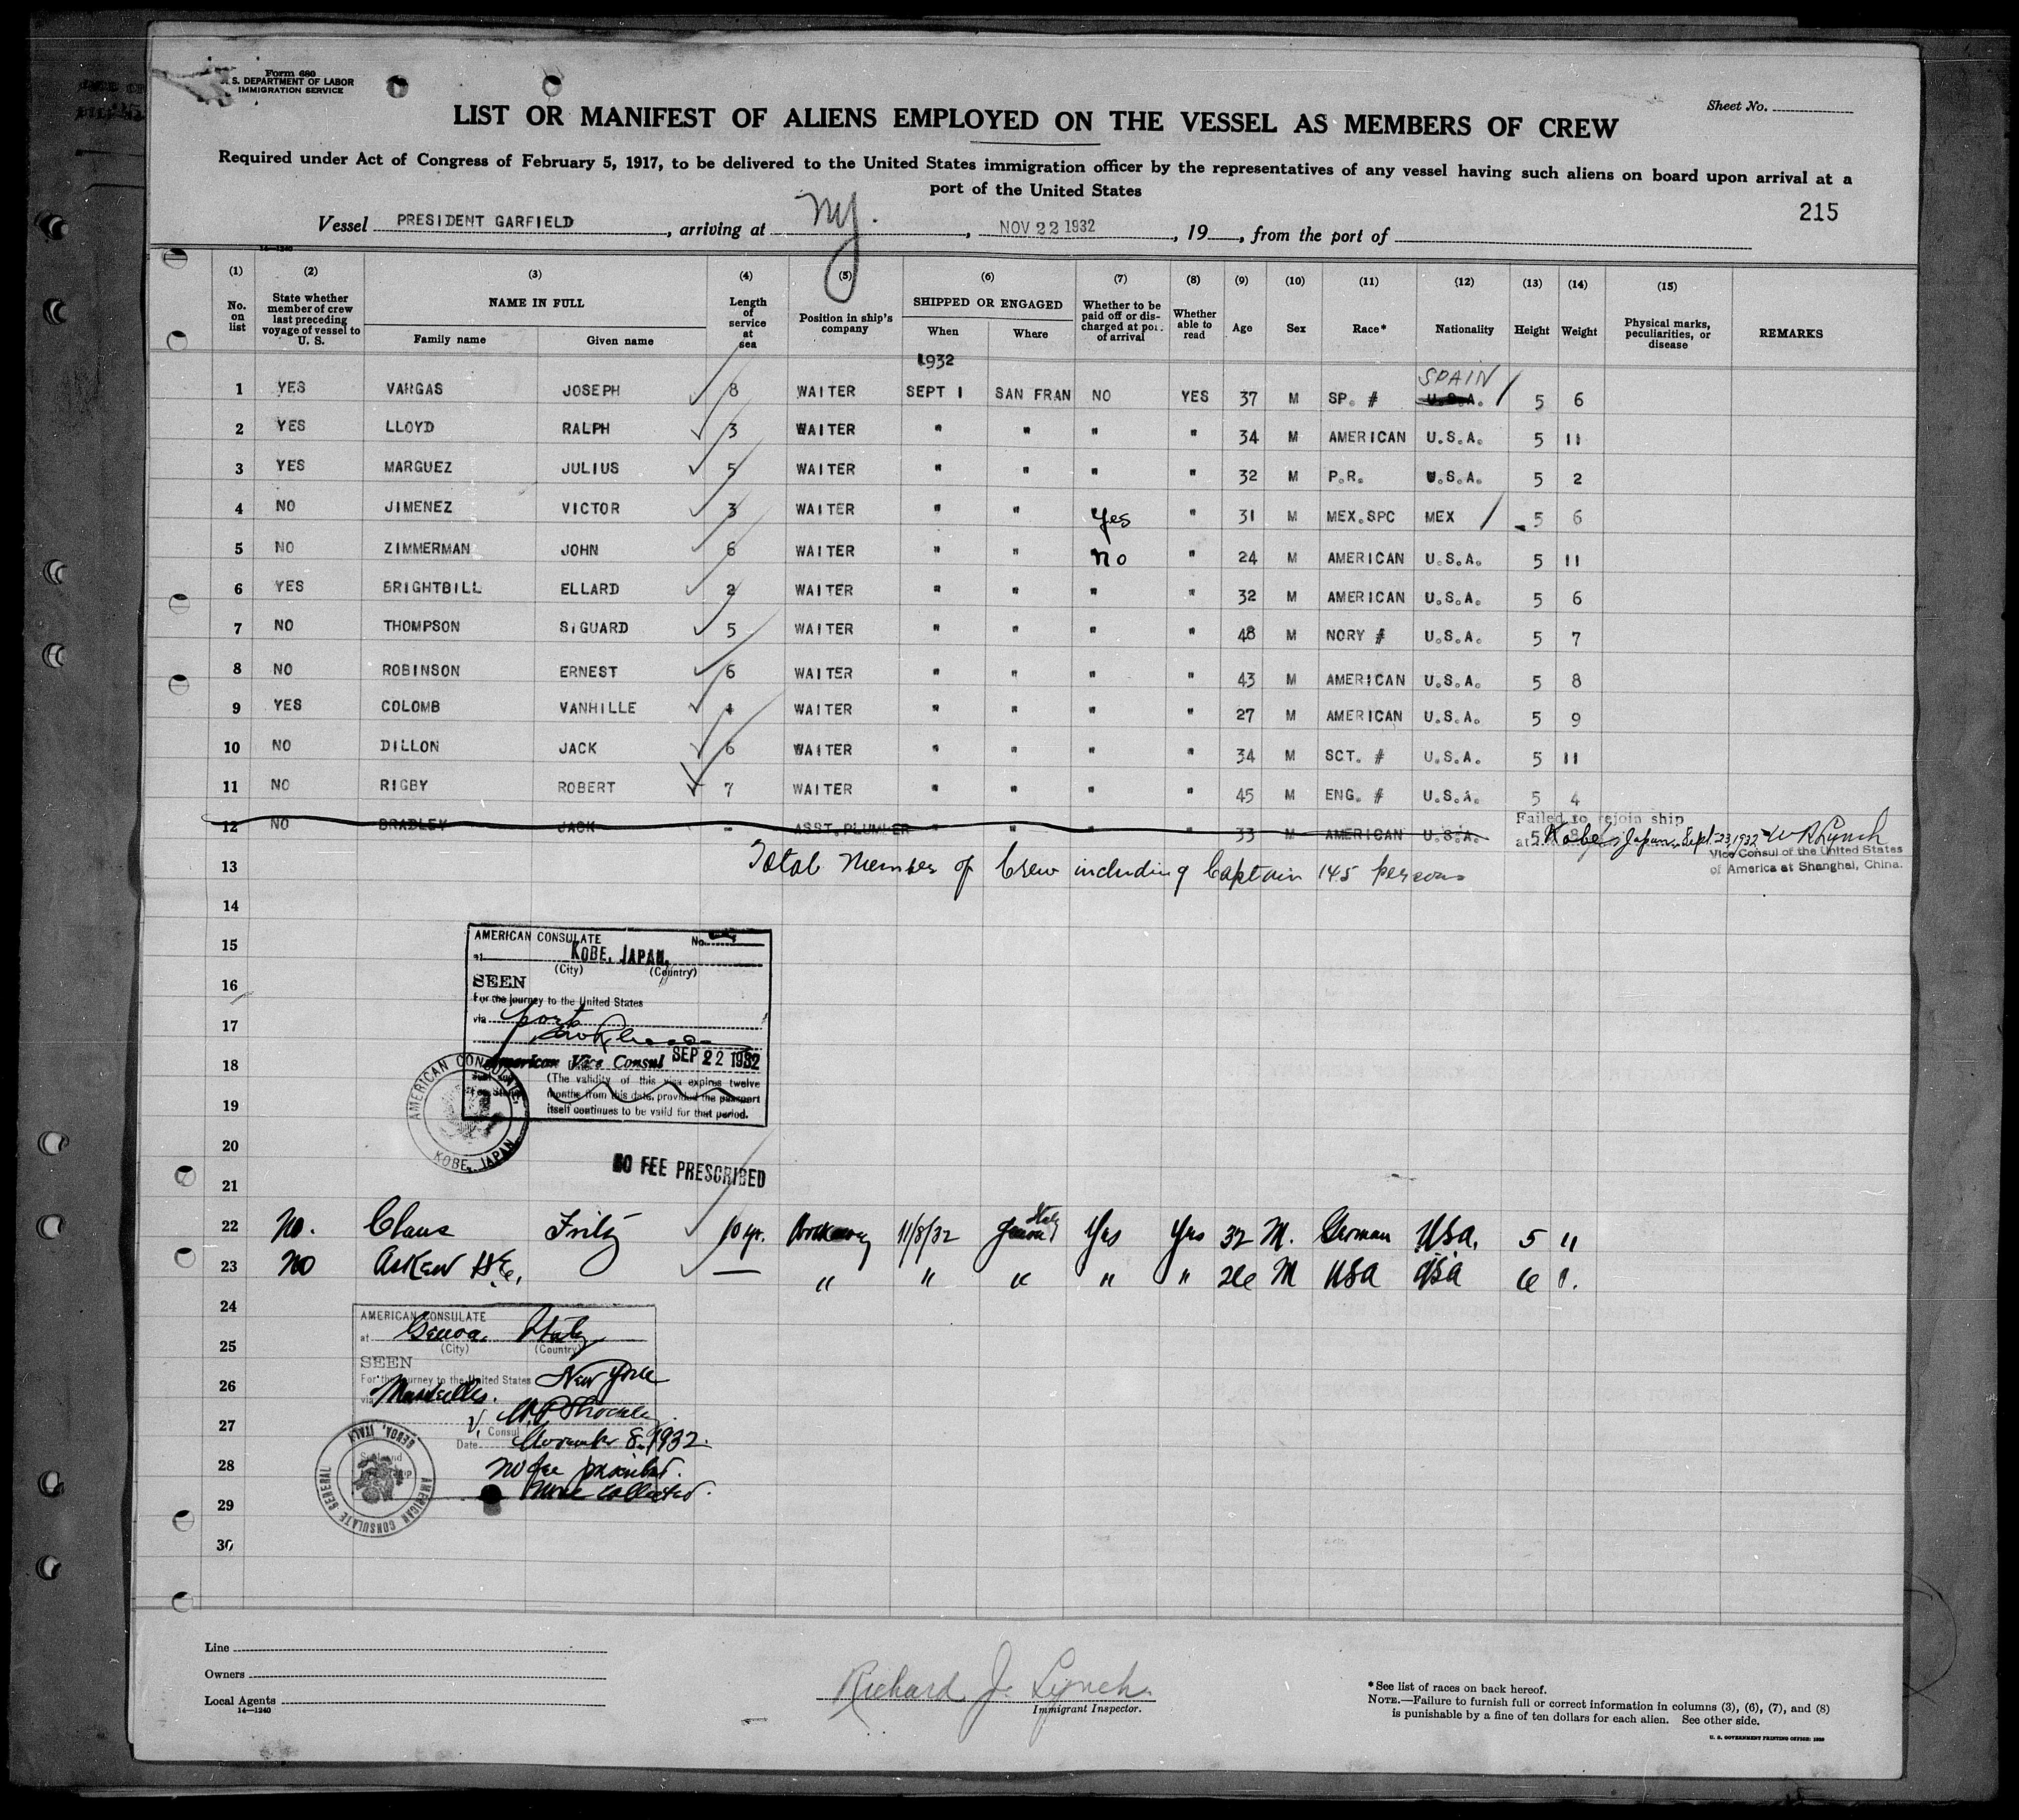 Form 680
U. S. DEPARTMENT OF LABOR
IMMIGRATION SERVICE
Sheet No.
LIST OR MANIFEST OF ALIENS EMPLOYED ON THE VESSEL AS MEMBERS OF CREW
Required under Act of Congress of February 5, 1917, to be delivered to the United States immigration officer by the representatives of any vessel having such aliens on board upon arrival at a
port of the United States
215
Vessel PRESIDENT GARFIELD, arriving at NY., NOV 22 1932, 19, from the port of
14-1240
(1) (2) (3) (4) (5) (6) (7) (8) (9) (10) (11) (12) (13) (14) (15)
No. on list
State whether member of crew last preceding voyage of vessel to U. S.
NAME IN FULL
Family name
Given name
Length of service at sea
Position in ship's company
SHIPPED OR ENGAGED
When
Where
Whether to be paid off or discharged at port of arrival
Whether able to read
Age
Sex
Race*
Nationality
Height
Weight
Physical marks, peculiarities, or disease
REMARKS
1932
SPAIN
1 YES VARGAS JOSEPH 8 WAITER SEPT 1 SAN FRAN NO YES 37 M SP. # U.S.A. 5 6
2 YES LLOYD RALPH 3 WAITER " " " " 34 M AMERICAN U.S.A. 5 11
3 YES MARGUEZ JULIUS 5 WAITER " " " " 32 M P.R. U.S.A. 5 2
4 NO JIMENEZ VICTOR 3 WAITER " " Yes " 31 M MEX.SPC MEX 5 6
5 NO ZIMMERMAN JOHN 6 WAITER " " no " 24 M AMERICAN U.S.A. 5 11
6 YES BRIGHTBILL ELLARD 2 WAITER " " " " 32 M AMERICAN U.S.A. 5 6
7 NO THOMPSON SIGUARD 5 WAITER " " " " 48 M NORY # U.S.A. 5 7
8 NO ROBINSON ERNEST 6 WAITER " " " " 43 M AMERICAN U.S.A. 5 8
9 YES COLOMB VANHILLE 4 WAITER " " " " 27 M AMERICAN U.S.A. 5 9
10 NO DILLON JACK 6 WAITER " " " " 34 M SCT. # U.S.A. 5 11
11 NO RIGBY ROBERT 7 WAITER " " " " 45 M ENG. # U.S.A. 5 4
12 NO BRADLEY JACK - ASST.PLUMLER " " " " 33 M AMERICAN U.S.A. 5 8
Failed to rejoin ship
at Kobe, Japan, Sept. 23, 1932 W R Lynch
Vice Consul of the United States
of America at Shanghai, China.
13 Total Number of Crew including Captain 145 persons
14
15
16
17
18
19
20
21
AMERICAN CONSULATE No.
at KOBE, JAPAN.
(City) (Country)
SEEN
For the journey to the United States
via port
American Vice Consul SEP 22 1932
(The validity of this visa expires twelve
months from this date, provided the passport
itself continues to be valid for that period.
AMERICAN CONSULATE
KOBE, JAPAN
NO FEE PRESCRIBED
22 No. Claus Fritz 10 yr. 11/8/32 Genoa Italy Yes Yes 32 M. German USA. 5 11
23 No Askew H.E. — " " " " " 26 M USA USA 6 1.
24
25
26
27
28
29
30
AMERICAN CONSULATE
at Genoa, Italy
(City) (Country)
SEEN
For the journey to the United States New York
via Marseilles.
V. Consul
Date November 8, 1932.
No fee prescribed.
None collected.
AMERICAN CONSULATE GENERAL
GENOA, ITALY
Line
Owners
Local Agents
14-1240
Richard J. Lynch
Immigrant Inspector.
*See list of races on back hereof.
NOTE.—Failure to furnish full or correct information in columns (3), (6), (7), and (8)
is punishable by a fine of ten dollars for each alien. See other side.